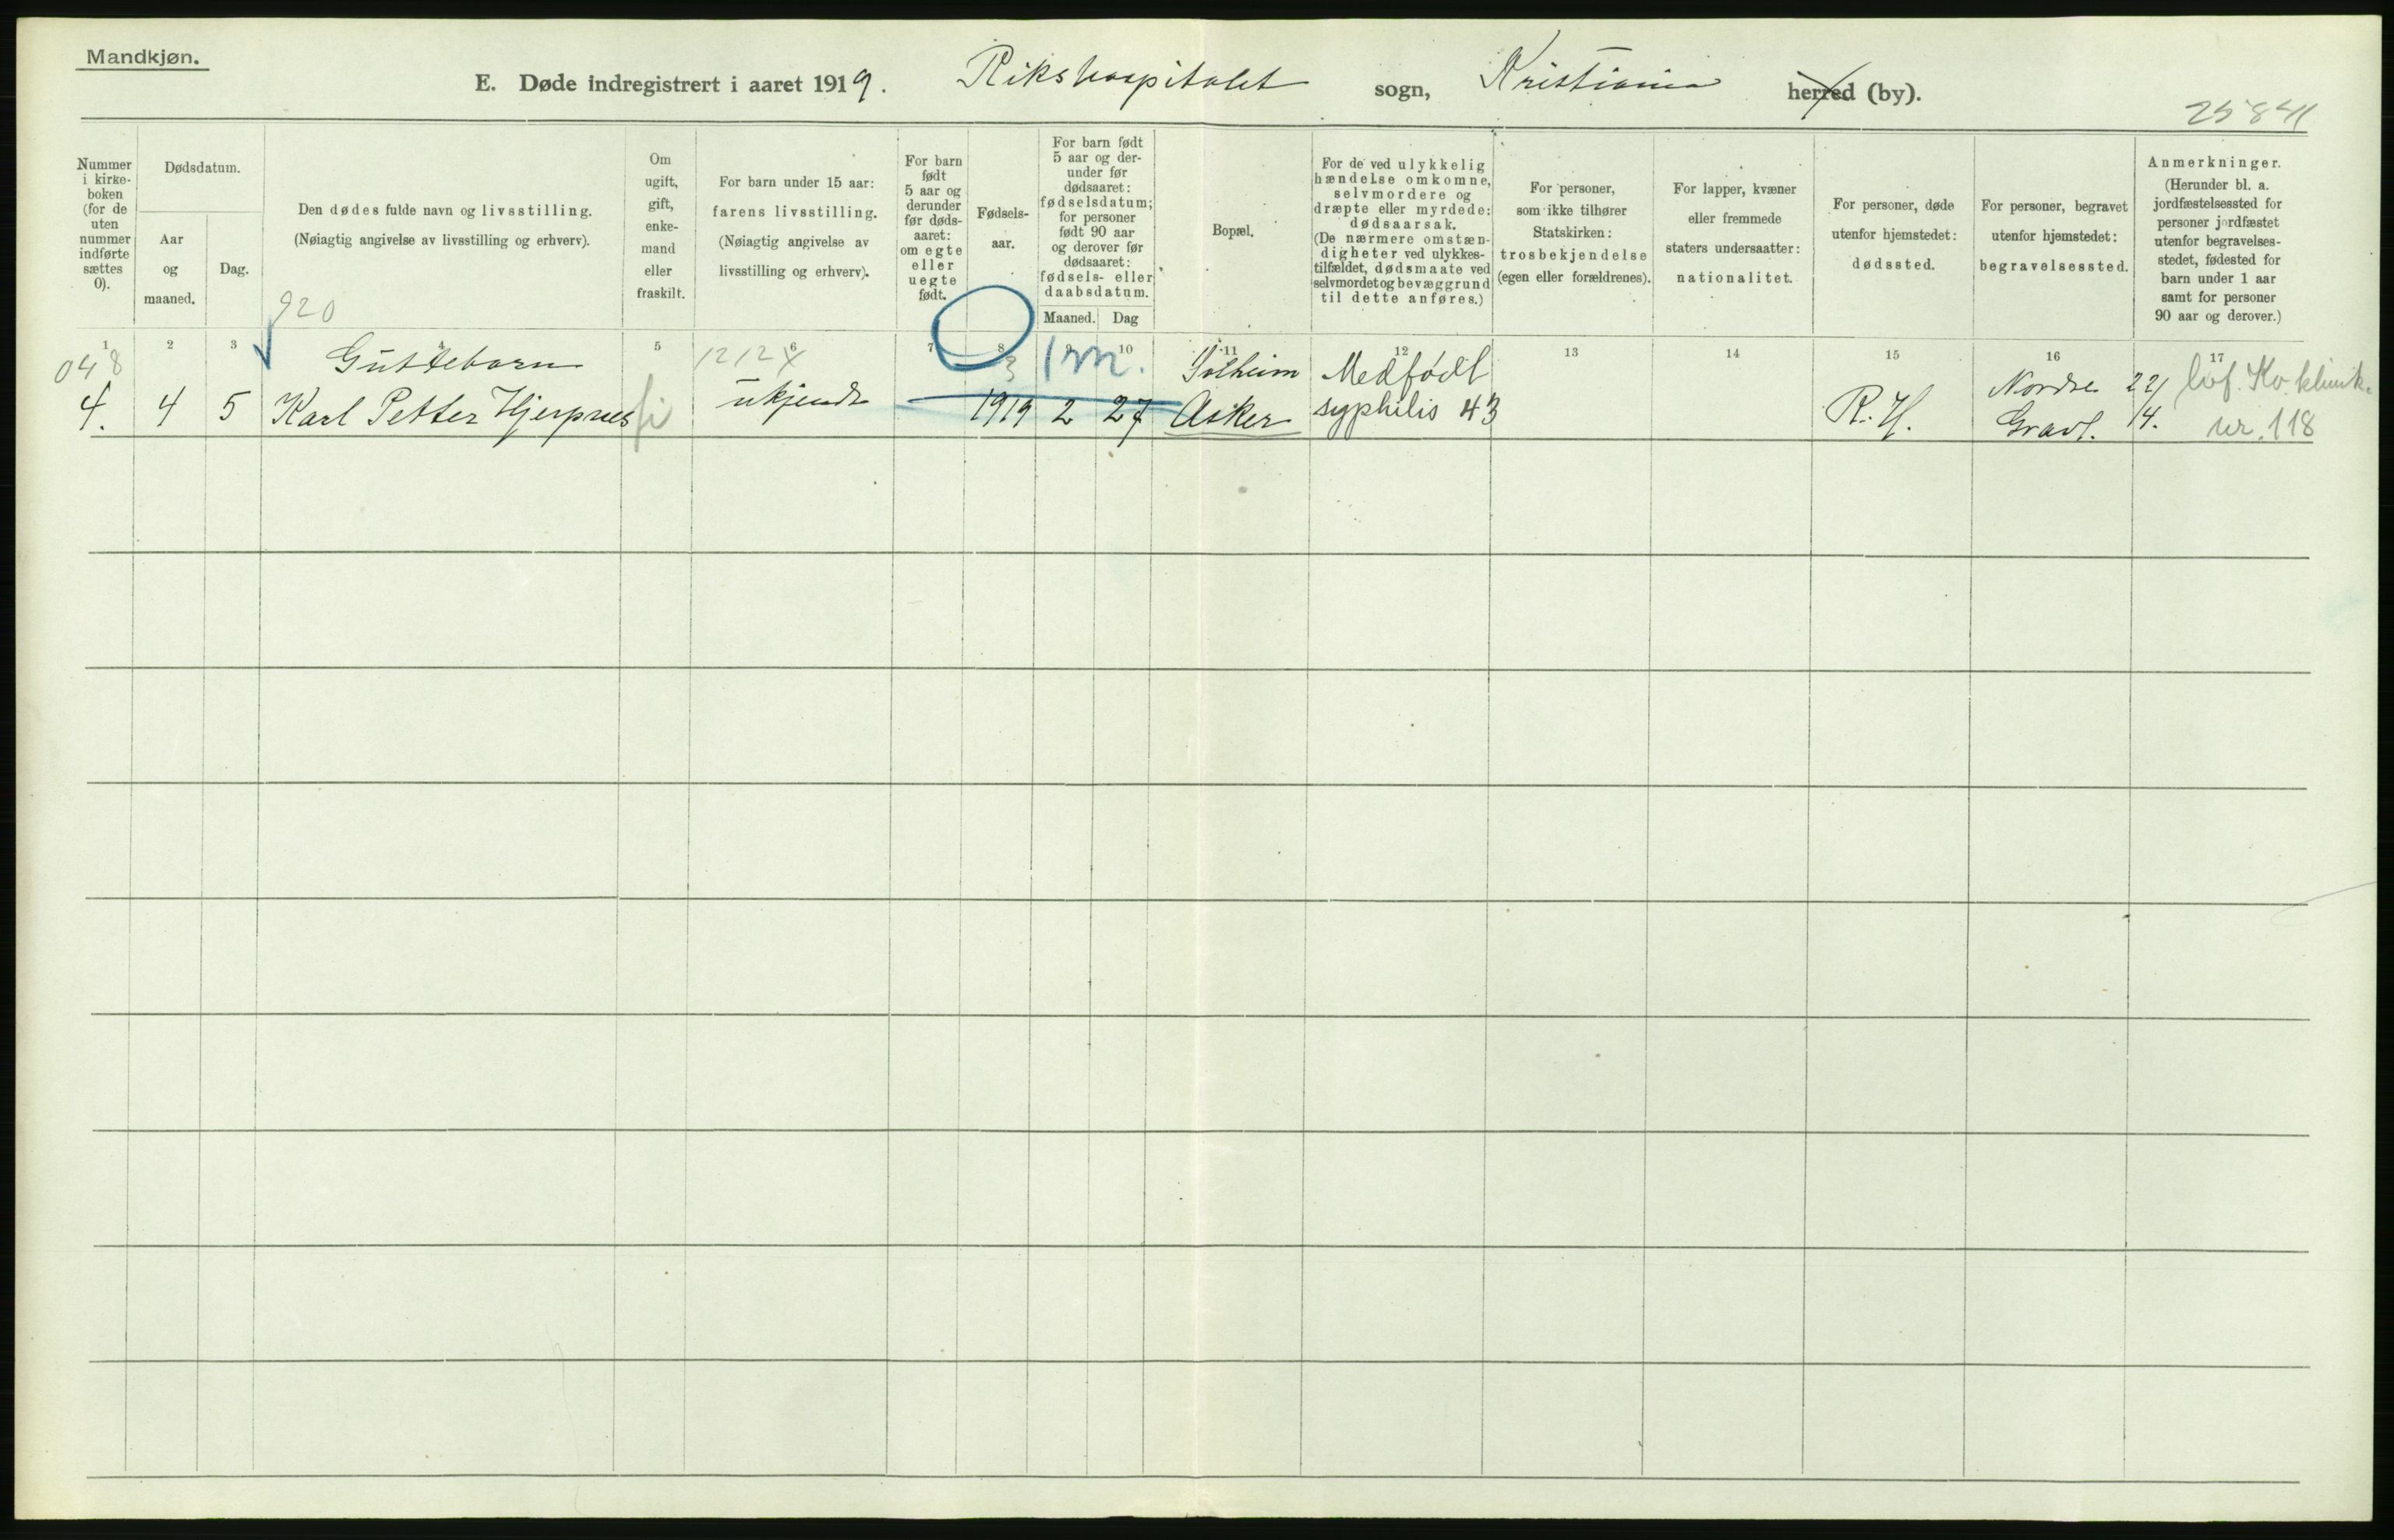 Mandkjøn.
E. Døde indregistrert i aaret 1919. Rikshospitalet sogn, Kristiania herred (by).
25841
Nummer
i kirke-
boken
(for de
uten
nummer
indførte
sættes
0).
Dødsdatum.
Aar
og
maaned.
Dag.
Den dødes fulde navn og livsstilling.
(Nøiagtig angivelse av livsstilling og erhverv).
Om
ugift,
gift,
enke-
mand
eller
fraskilt.
For barn under 15 aar:
farens livsstilling.
(Nøiagtig angivelse av
livsstilling og erhverv).
For barn
født
5 aar og
derunder
før døds-
aaret:
om egte
eller
uegte
født.
Fødsels-
aar.
For barn født
5 aar og der-
under før
dødsaaret:
fødselsdatum;
for personer
født 90 aar
og derover før
dødsaaret:
fødsels- eller
daabsdatum.
Maaned. Dag
Bopæl.
For de ved ulykkelig
hændelse omkomne,
selvmordere og
dræpte eller myrdede:
dødsaarsak.
(De nærmere omstæn-
digheter ved ulykkes-
tilfældet, dødsmaate ved
selvmordet og bevæggrund
til dette anføres.)
For personer,
som ikke tilhører
Statskirken:
trosbekjendelse
(egen eller forældrenes).
For lapper, kvæner
eller fremmede
staters undersaatter:
nationalitet.
For personer, døde
utenfor hjemstedet:
dødssted.
For personer, begravet
utenfor hjemstedet:
begravelsessted.
Anmerkninger.
(Herunder bl. a.
jordfæstelsessted for
personer jordfæstet
utenfor begravelses-
stedet, fødested for
barn under 1 aar
samt for personer
90 aar og derover.)
920
1 2 3 4 5 6 7 8 9 10 11 12 13 14 15 16 17
048 Guttebarn 1212 X 3 1 m. Solheim Medfödt Nordre 22/
4. 4 5 Karl Petter Hjerpnes ukjendt 1919 2 27 Asker syphilis 43 R.H. Gravl. 4. nr. 118